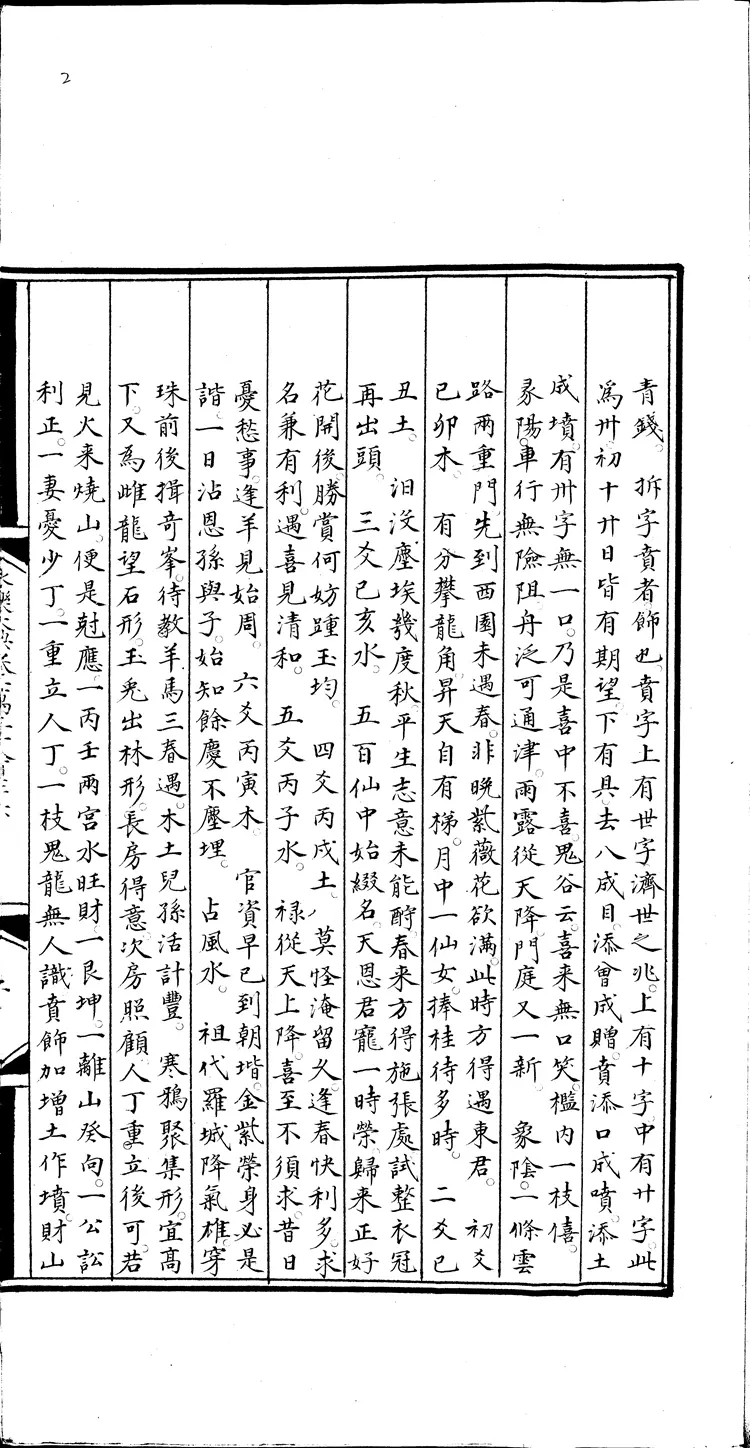 2
青錢。拆字賁者飾也。賁字上有世字濟世之兆。上有十字中有廾字此
為卅。初十廾日皆有期望。下有具。去八成目。添會成贈。賁添口成噴。添土
成墳。有卅字無一口。乃是喜中不喜。鬼谷云。喜来無口笑。檻内一枝僖。
彖陽。車行無險阻。舟泛可通津。雨露從天降。門庭又一新。象陰。一條雲
路兩重門。先到西園未遇春。非晚紫薇花欲滿。此時方得遇東君。初爻
己卯木。有分攀龍角。昇天自有梯。月中一仙女。捧桂待多時。二爻己
丑土。汨沒塵埃幾度秋。平生志意未能酧。春来方得施張處。試整衣冠
再出頭。三爻己亥水。五百仙中始綴名。天恩君寵一時榮。歸来正好
花開後。勝賞何妨踵玉均。四爻丙戌土。莫怪淹留久。逢春快利多。求
名兼有利。遇喜見清和。五爻丙子水。禄從天上降。喜至不須求。昔日
憂愁事。逢羊見始周。六爻丙寅木。官資早已到朝堦。金紫榮身必是
諧。一日沾恩孫與子。始知餘慶不壓埋。占風水。祖代羅城降氣雄。穿
珠前後揖奇峯。待教羊馬三春遇。木土兒孫活計豐。寒鴉聚集形。宜高
下。又為雌龍望石形。玉兎出林形。長房得意。次房照顧。人丁重立後可。若
見火来燒山。便是尅應。一丙壬兩宮水旺財。一艮坤。一離山癸向。一公訟
利正。一妻憂少丁。一重立人丁。一枝鬼龍無人識。賁飾加增土作墳。財山